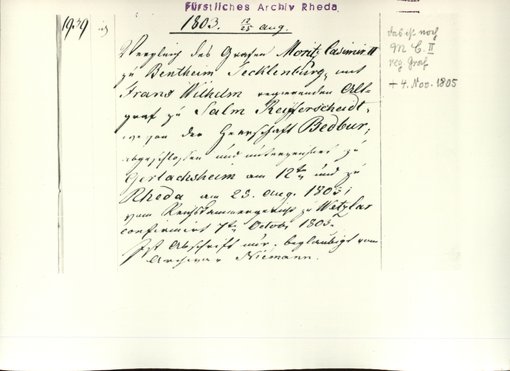 Fürstliches Archiv Rheda
1939
1803. 12/25 Aug.
Vergleich des Grafen Moritz Casimir II
zu Bentheim Tecklenburg, mit
Franz Wilhelm regierenden Alt-
graf zu Salm Reifferscheidt,
wegen der Herrschaft Bedbur,
abgeschlossen und unterzeichnet zu
Gerlachsheim am 12ten und zu
Rheda am 25. Aug. 1803;
vom Reichskammergericht zu Wetzlar
confirmirt 7ten Octobr 1803.
Ist Abschrift nur, beglaubigt vom
Archivar Niemann.
das ist noch
M. C. II
reg. Graf
+ 4. Nov. 1805